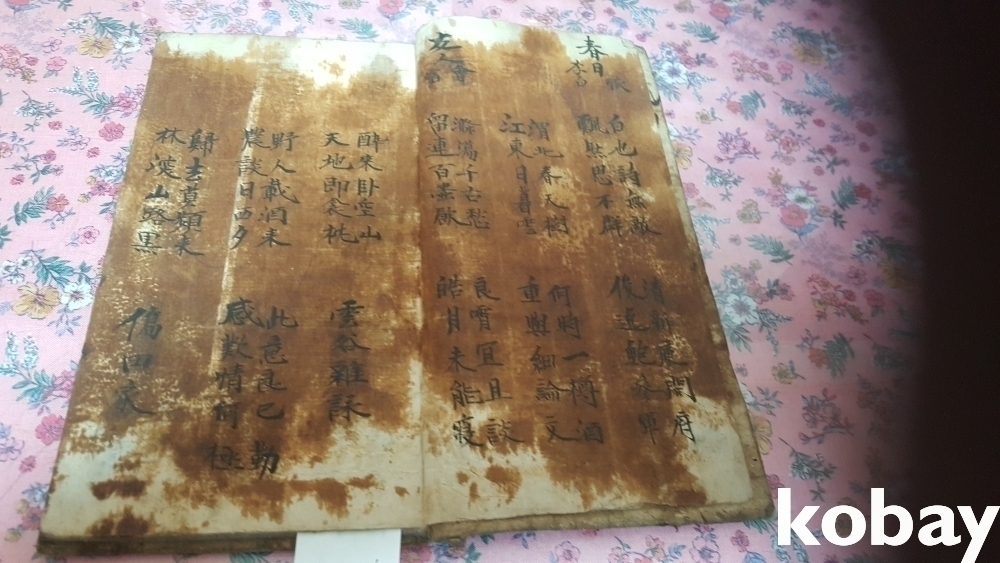 春日憶
李白
白也詩無敵
飄然思不羣
清新庾開府
俊逸鮑參軍
渭北春天樹
江東日暮雲
何時一樽酒
重與細論文
友人會宿
滌蕩千古愁
留連百壺飲
良宵宜且談
皓月未能寢
醉來臥空山
天地即衾枕
雲谷雜詠
野人載酒來
農談日西夕
此意良已勤
感歎情何極
歸去莫頻來
林深山路黑
kobay